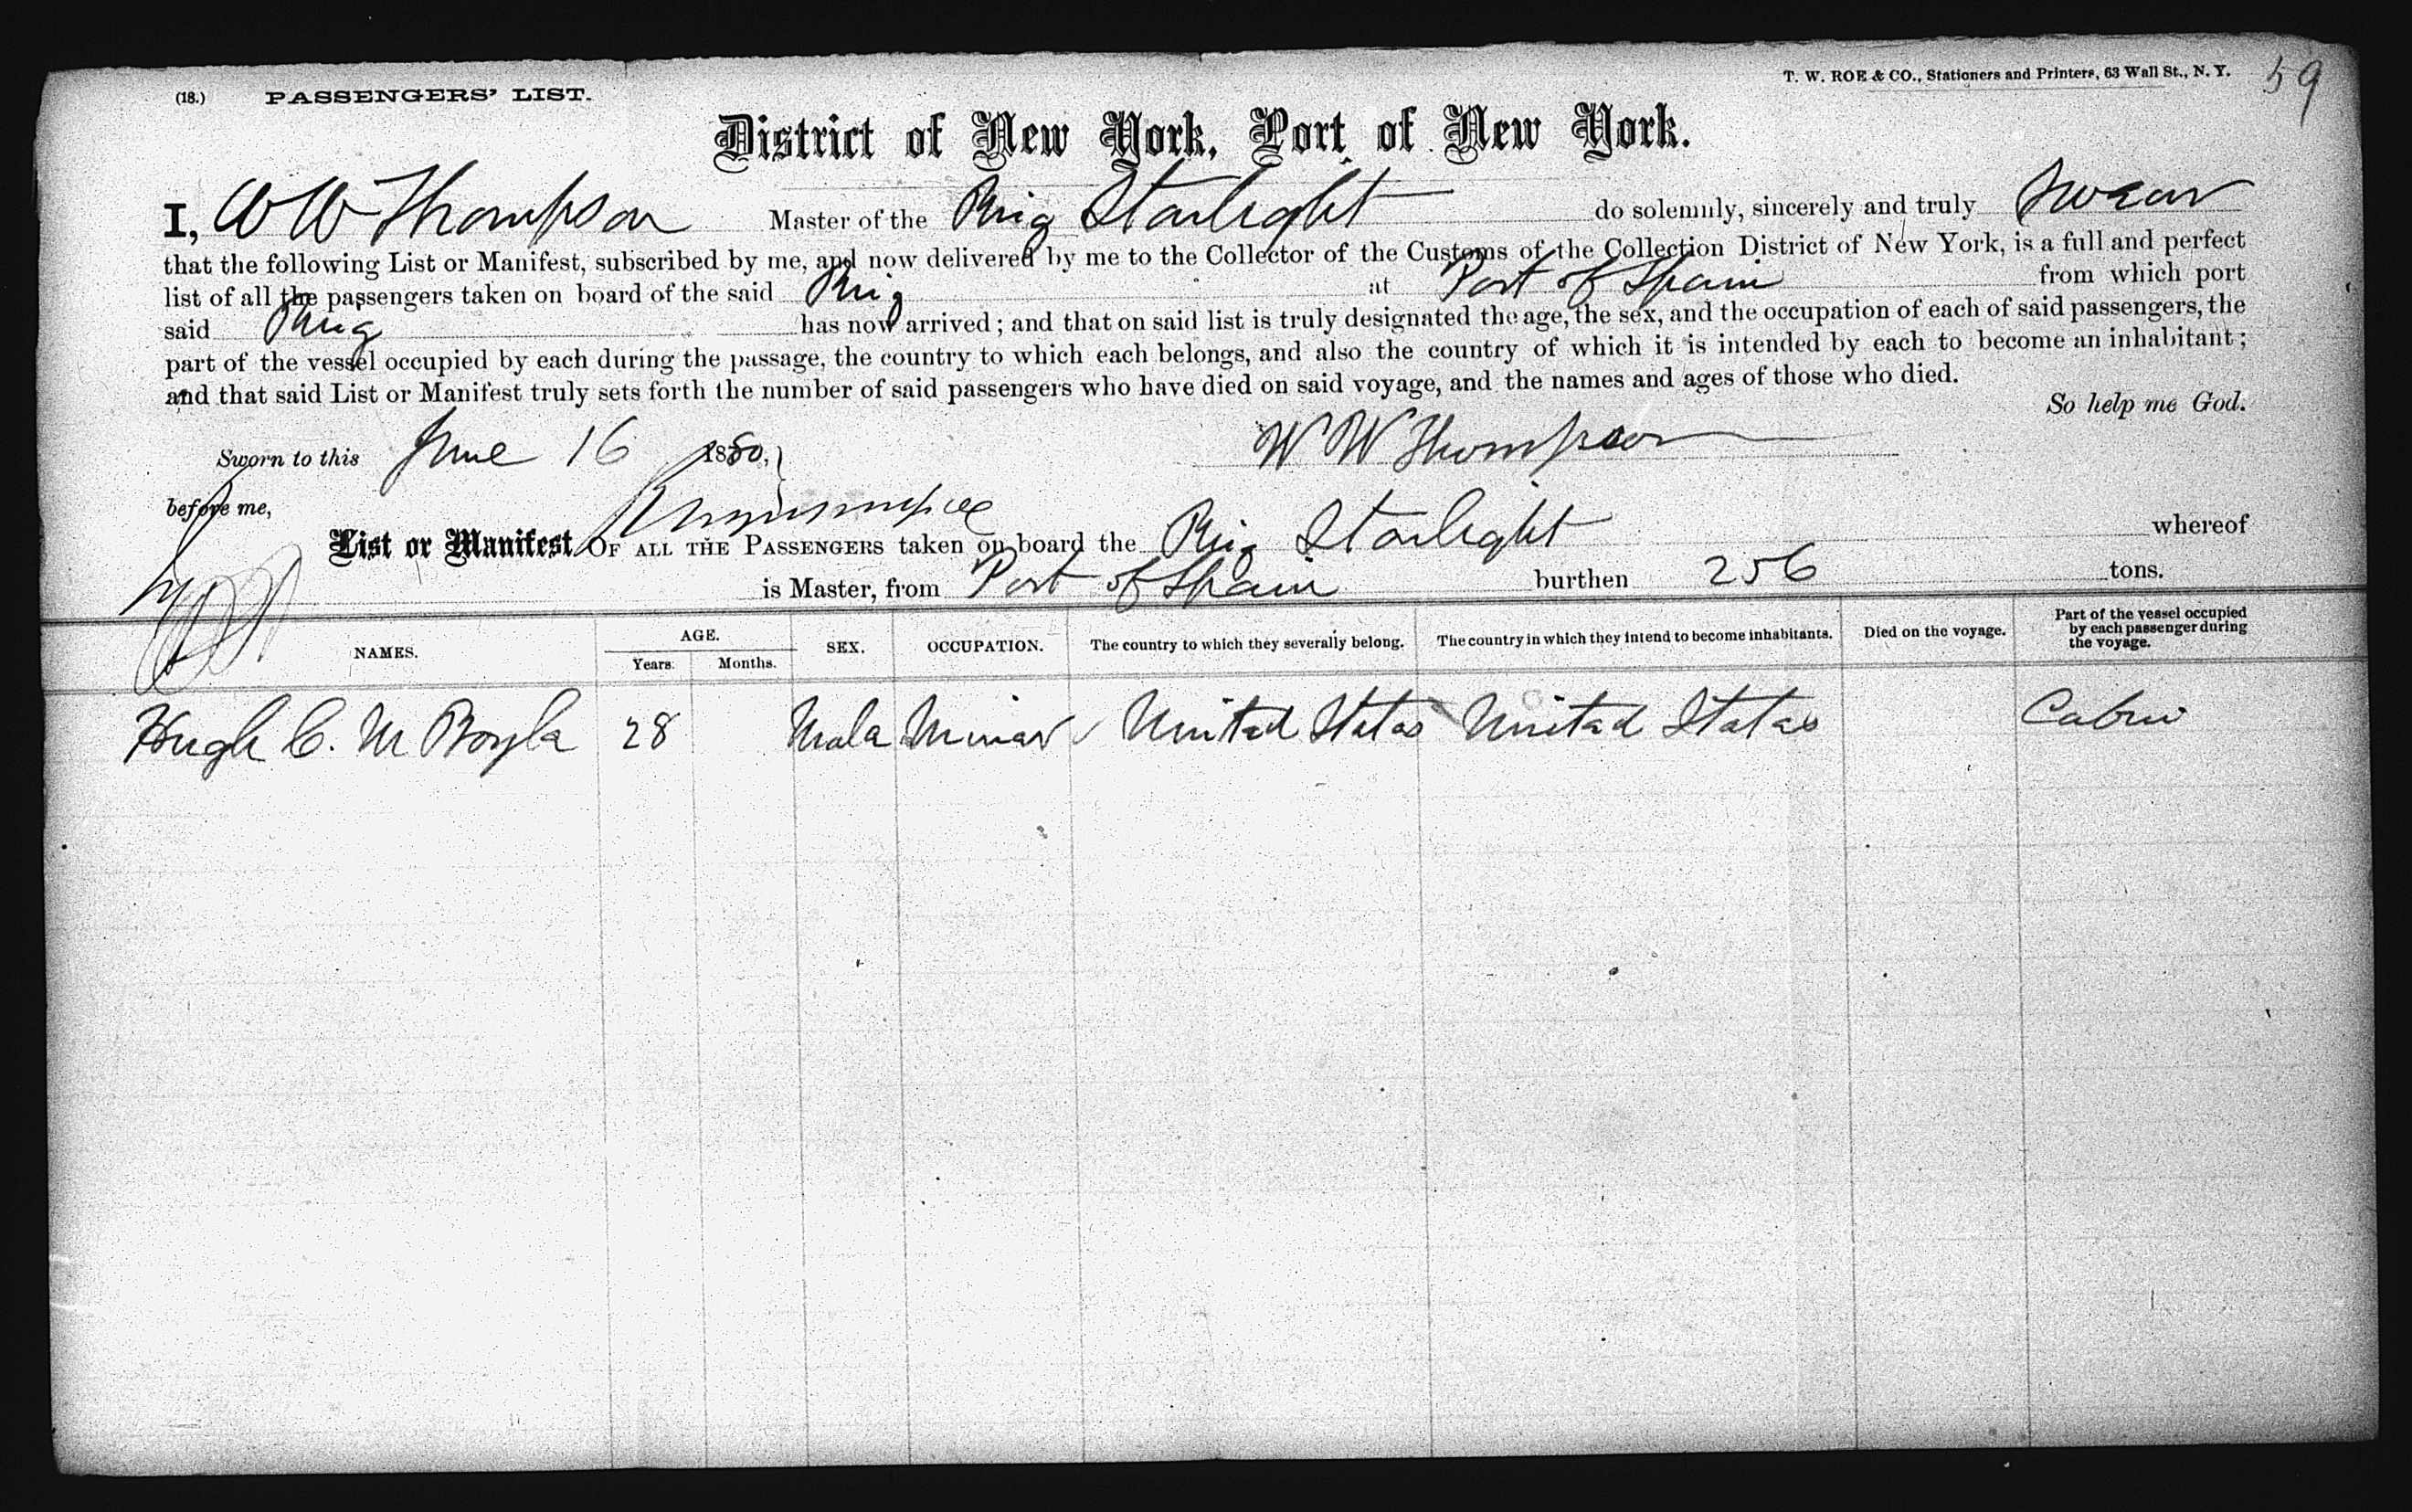 (18.) PASSENGERS' LIST.
T. W. ROE & CO., Stationers and Printers, 63 Wall St., N. Y.
59
District of New York, Port of New York.
I, W W Thompson Master of the Brig Starlight do solemnly, sincerely and truly swear
that the following List or Manifest, subscribed by me, and now delivered by me to the Collector of the Customs of the Collection District of New York, is a full and perfect
list of all the passengers taken on board of the said Brig at Port of Spain from which port
said Brig has now arrived; and that on said list is truly designated the age, the sex, and the occupation of each of said passengers, the
part of the vessel occupied by each during the passage, the country to which each belongs, and also the country of which it is intended by each to become an inhabitant;
and that said List or Manifest truly sets forth the number of said passengers who have died on said voyage, and the names and ages of those who died.
So help me God.
Sworn to this June 16 1880,
W W Thompson
before me,
List or Manifest OF ALL THE PASSENGERS taken on board the Brig Starlight whereof
is Master, from Port of Spain burthen 256 tons.
NAMES. AGE. Years. Months. SEX. OCCUPATION. The country to which they severally belong. The country in which they intend to become inhabitants. Died on the voyage. Part of the vessel occupied by each passenger during the voyage.
Hugh C. M Boyle 28 Male Miner United States United States Cabin